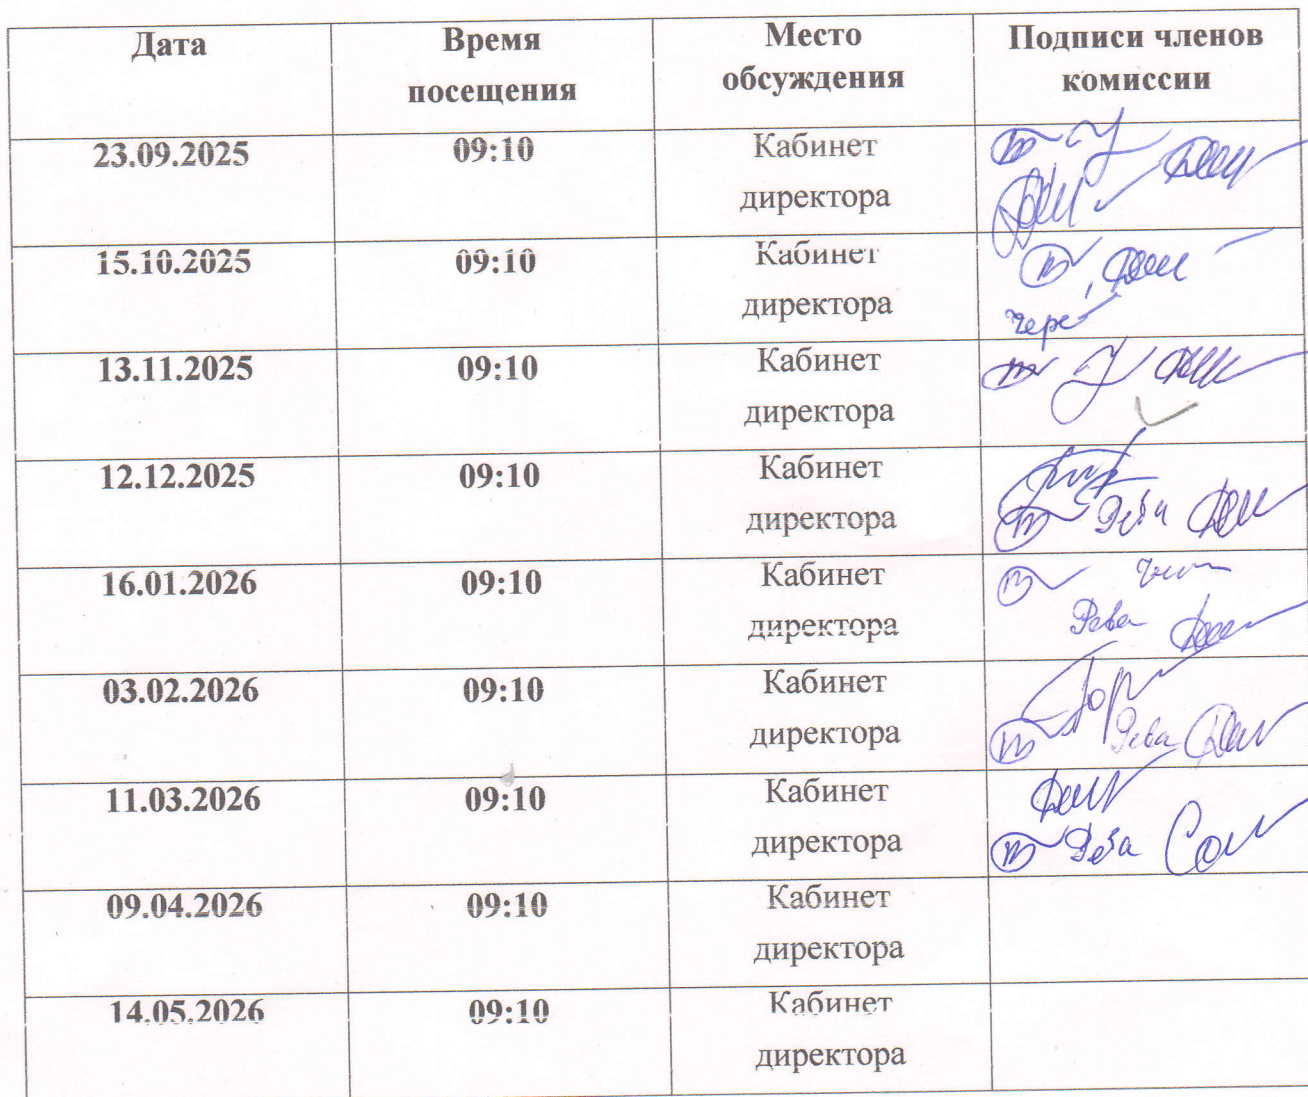 Дата Время Место Подписи членов
посещения обсуждения комиссии
23.09.2025 09:10 Кабинет
директора
15.10.2025 09:10 Кабинет
директора
13.11.2025 09:10 Кабинет
директора
12.12.2025 09:10 Кабинет
директора
Рева
16.01.2026 09:10 Кабинет
директора
Рева
03.02.2026 09:10 Кабинет
директора
Рева
11.03.2026 09:10 Кабинет
директора
Рева
09.04.2026 09:10 Кабинет
директора
14.05.2026 09:10 Кабинет
директора